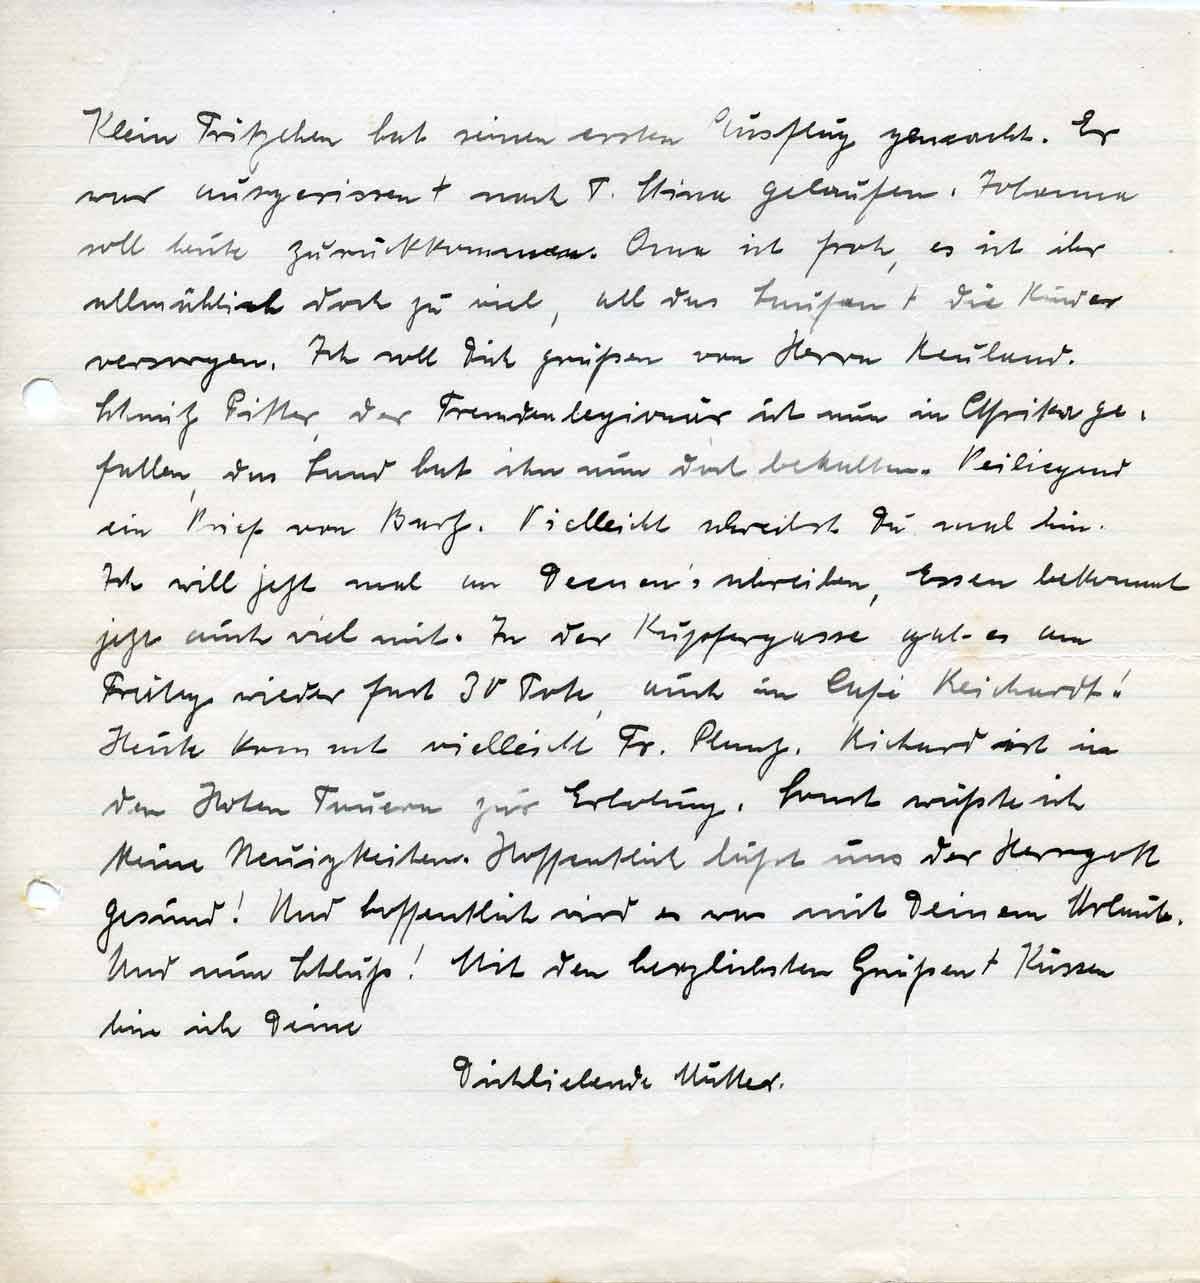 Klein Fritzchen hat seinen ersten Ausflug gemacht. Er
war ausgerissen + nach T. Stina gelaufen. Johanna
soll heute zurückkommen. Oma ist froh, es ist ihr
allmählich doch zu viel, all das Laufen + die Kinder
versorgen. Ich soll Dich grüßen von Herrn Neuland.
Schmitz Pitter, der Fremdenlegionär ist nun in Afrika ge-
fallen, das Land hat ihn nun doch behalten. Beiliegend
ein Brief von Bartz. Vielleicht schreibst Du mal hin.
Ich will jetzt mal an schreiben, Essen bekommt
jetzt auch viel mit. In der Kupfergasse gab es am
Freitag wieder fast 30 Tote, auch im Café Reichardt!
Heute kommt vielleicht Fr. Richard ist in
den Hohen Tauern zur Erholung. Sonst wüßte ich
keine Neuigkeiten. Hoffentlich läßt uns der Herrgott
gesund! Und hoffentlich wird es was mit Deinem Urlaub.
Und nun Schluß! Mit den herzlichsten Grüßen + Küssen
bin ich Deine
Dichliebende Mutter.